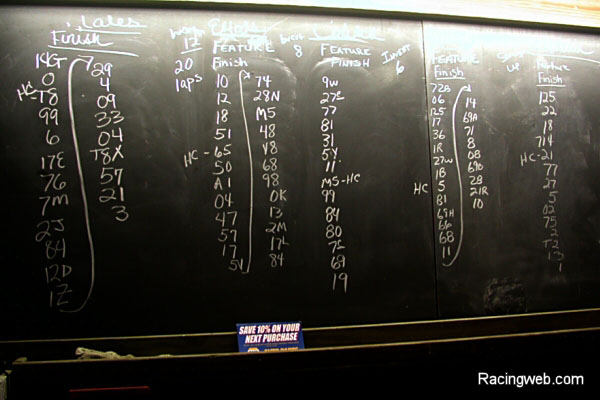 Lates
Finish
19GT
0
HC T8
99
6
17E
76
7M
2J
84
12D
1Z
29
4
09
33
04
T8X
57
21
3
12
20
laps
FEATURE
Finish
10
12
18
51
HC - 65
50
A1
04
47
57
17
5V
74
28N
M5
48
V8
68
98
0K
13
2M
17L
84
Invert
8
FEATURE
FINISH
9W
27S
77
81
31
5Y
11
M5-HC
99
84
80
7S
69
19
Invert
6
FEATURE
Finish
72A
06
125
17
36
1R
27W
1B
HC 5
81
69H
66
68
11
14
69A
71
8
0B
690
28
21R
10
Feature
Finish
125
22
18
714
HC-21
77
27
5
02
75
2
T2
13
1
SAVE 10% ON YOUR
NEXT PURCHASE
Racingweb.com